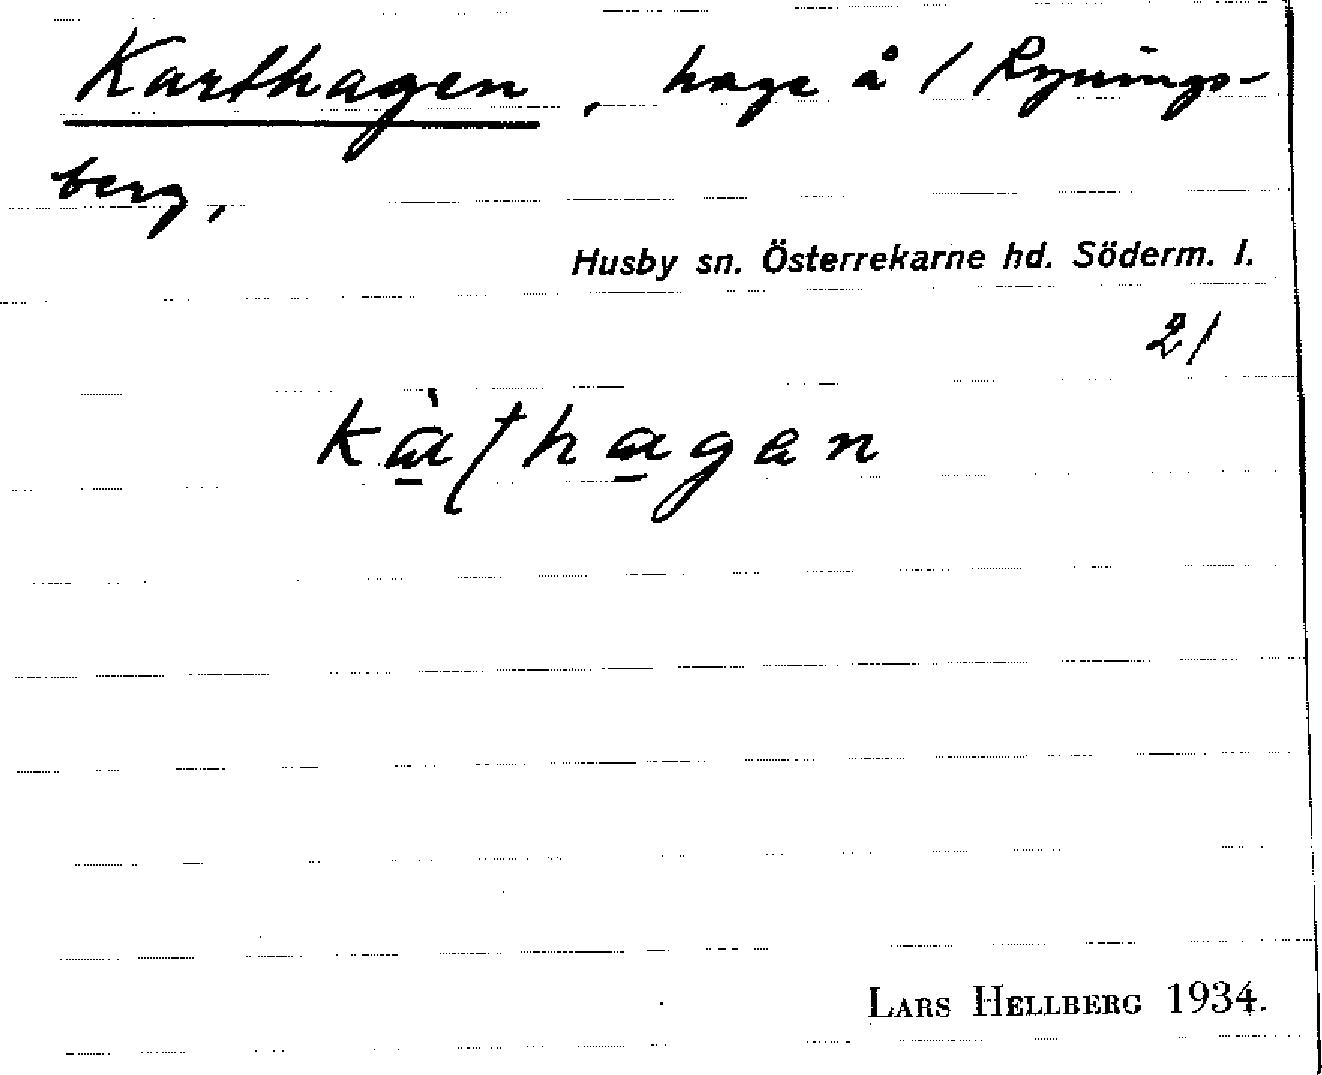 Karthagen, hage å / Rynings-
berg,
Husby sn. Österrekarne hd. Söderm. l.
21
LARS HELLBERG 1934.